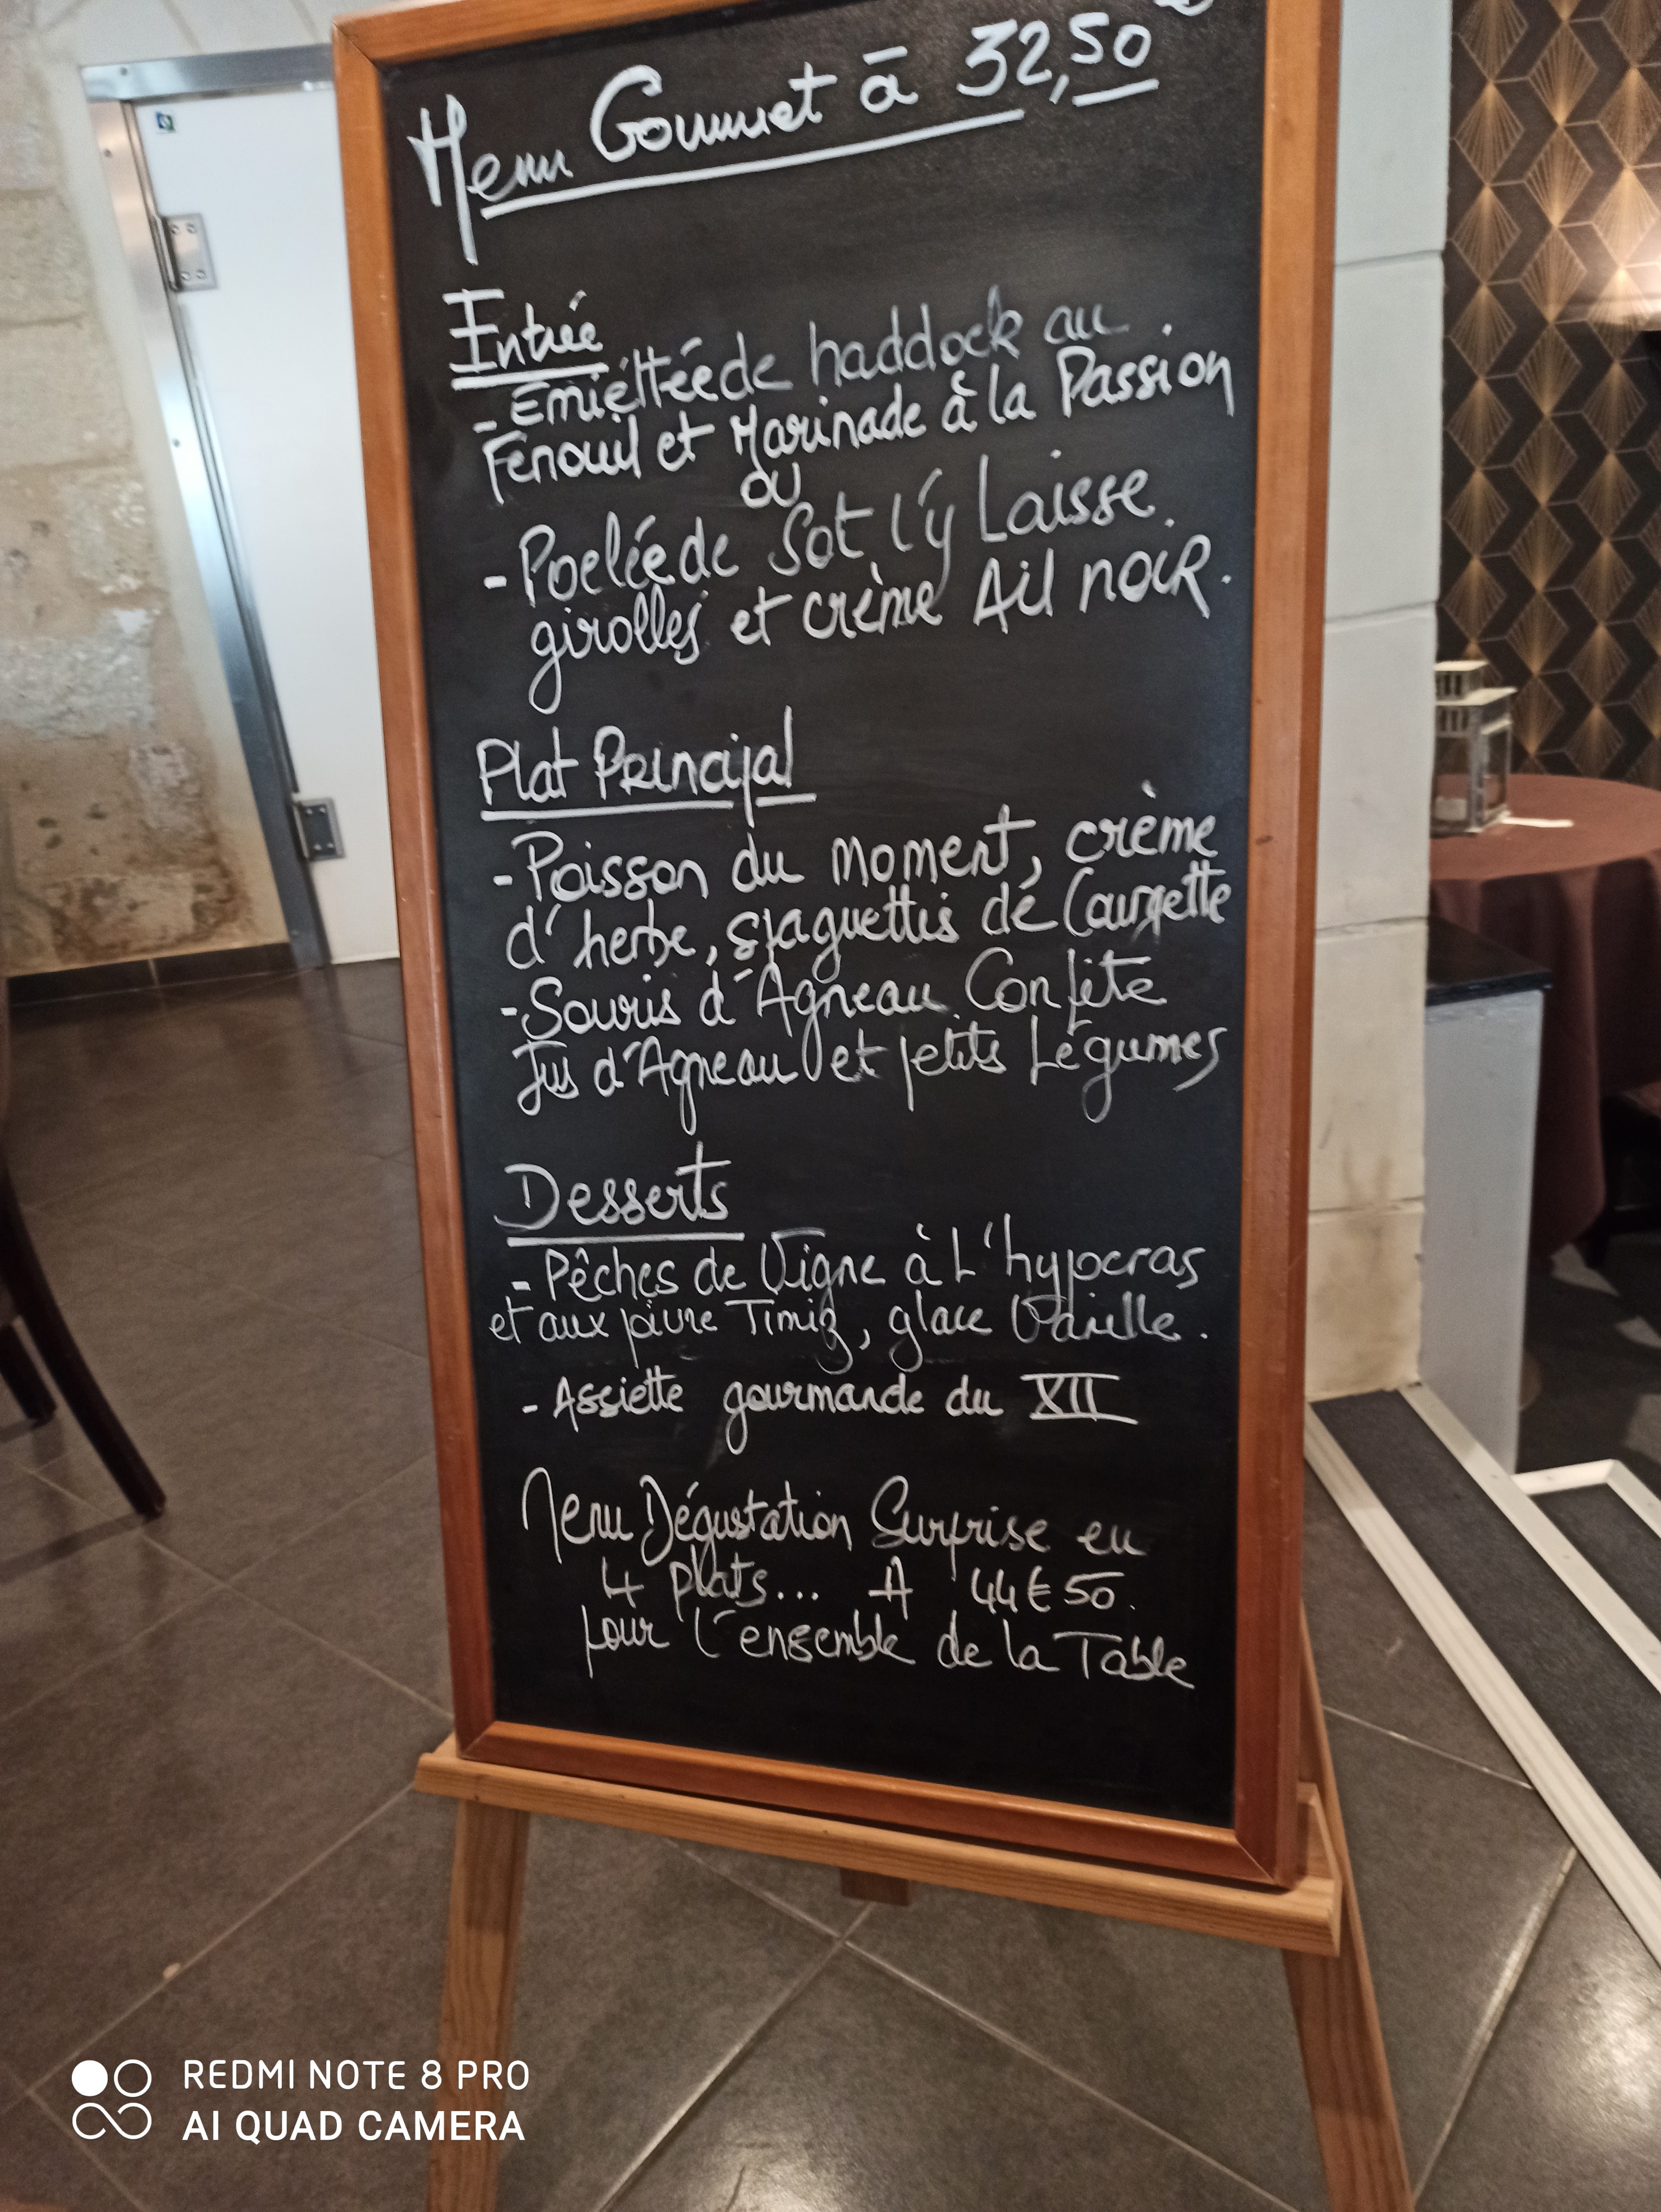 Menu Gourmet à 32,50
Entrée
- Emiéttée de haddock au
Fenouil et Marinade à la Passion
ou
- Poelée de Sot l'y Laisse.
girolles et crème Ail noir.
Plat Principal
- Poisson du moment, crème
d'herbe, spaguettis de Courgette
- Souris d'Agneau Confite
Jus d'Agneau et petits Légumes
Desserts
- Pêches de Vigne à L'hypocras
et aux poivre Timiz, glace Vanille.
- Assiette gourmande du XII
Menu Dégustation Surprise en
4 plats... A 44€50.
pour l'ensemble de la Table
REDMI NOTE 8 PRO
AI QUAD CAMERA